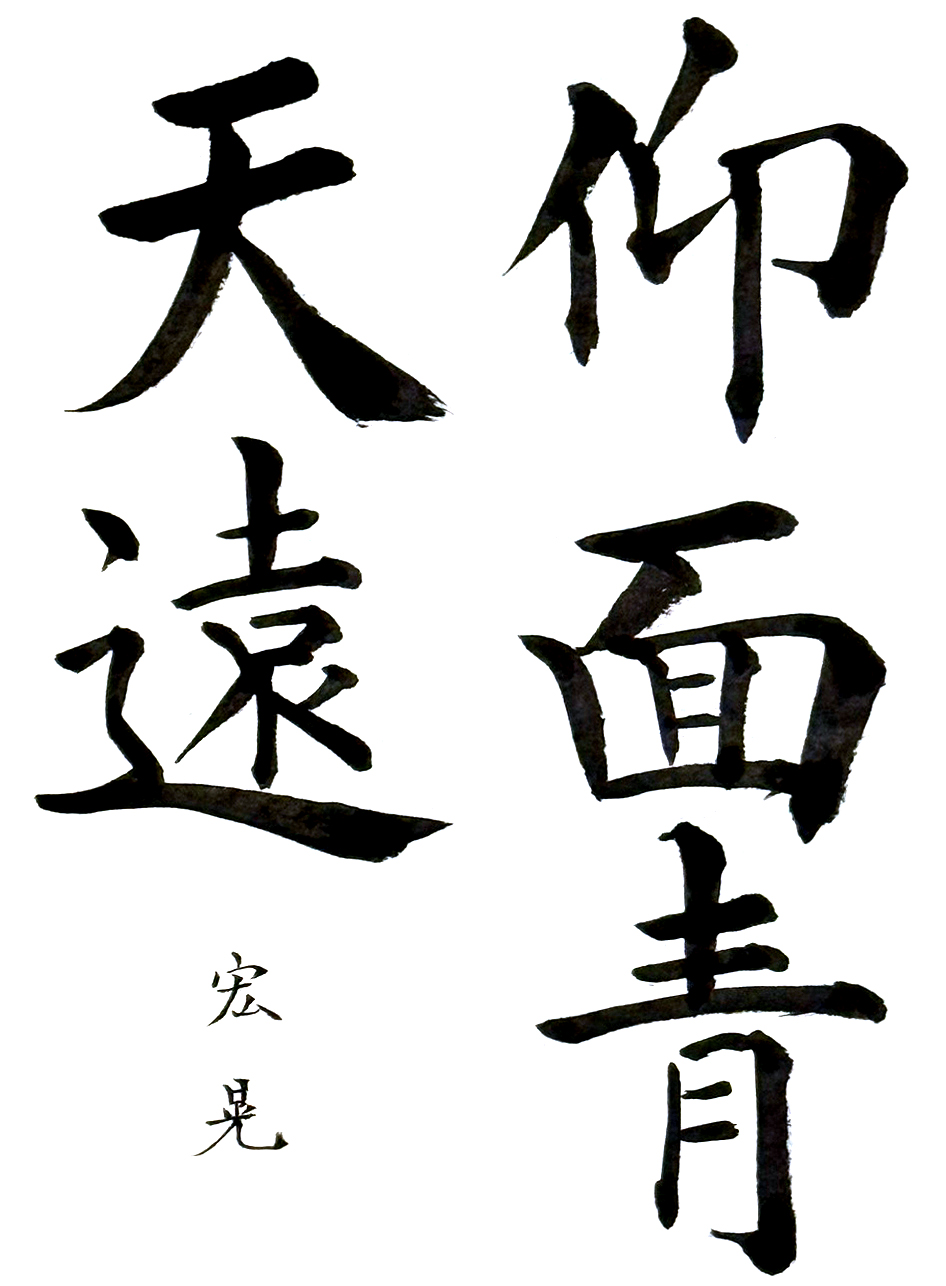 仰面青
天遠
宏晃